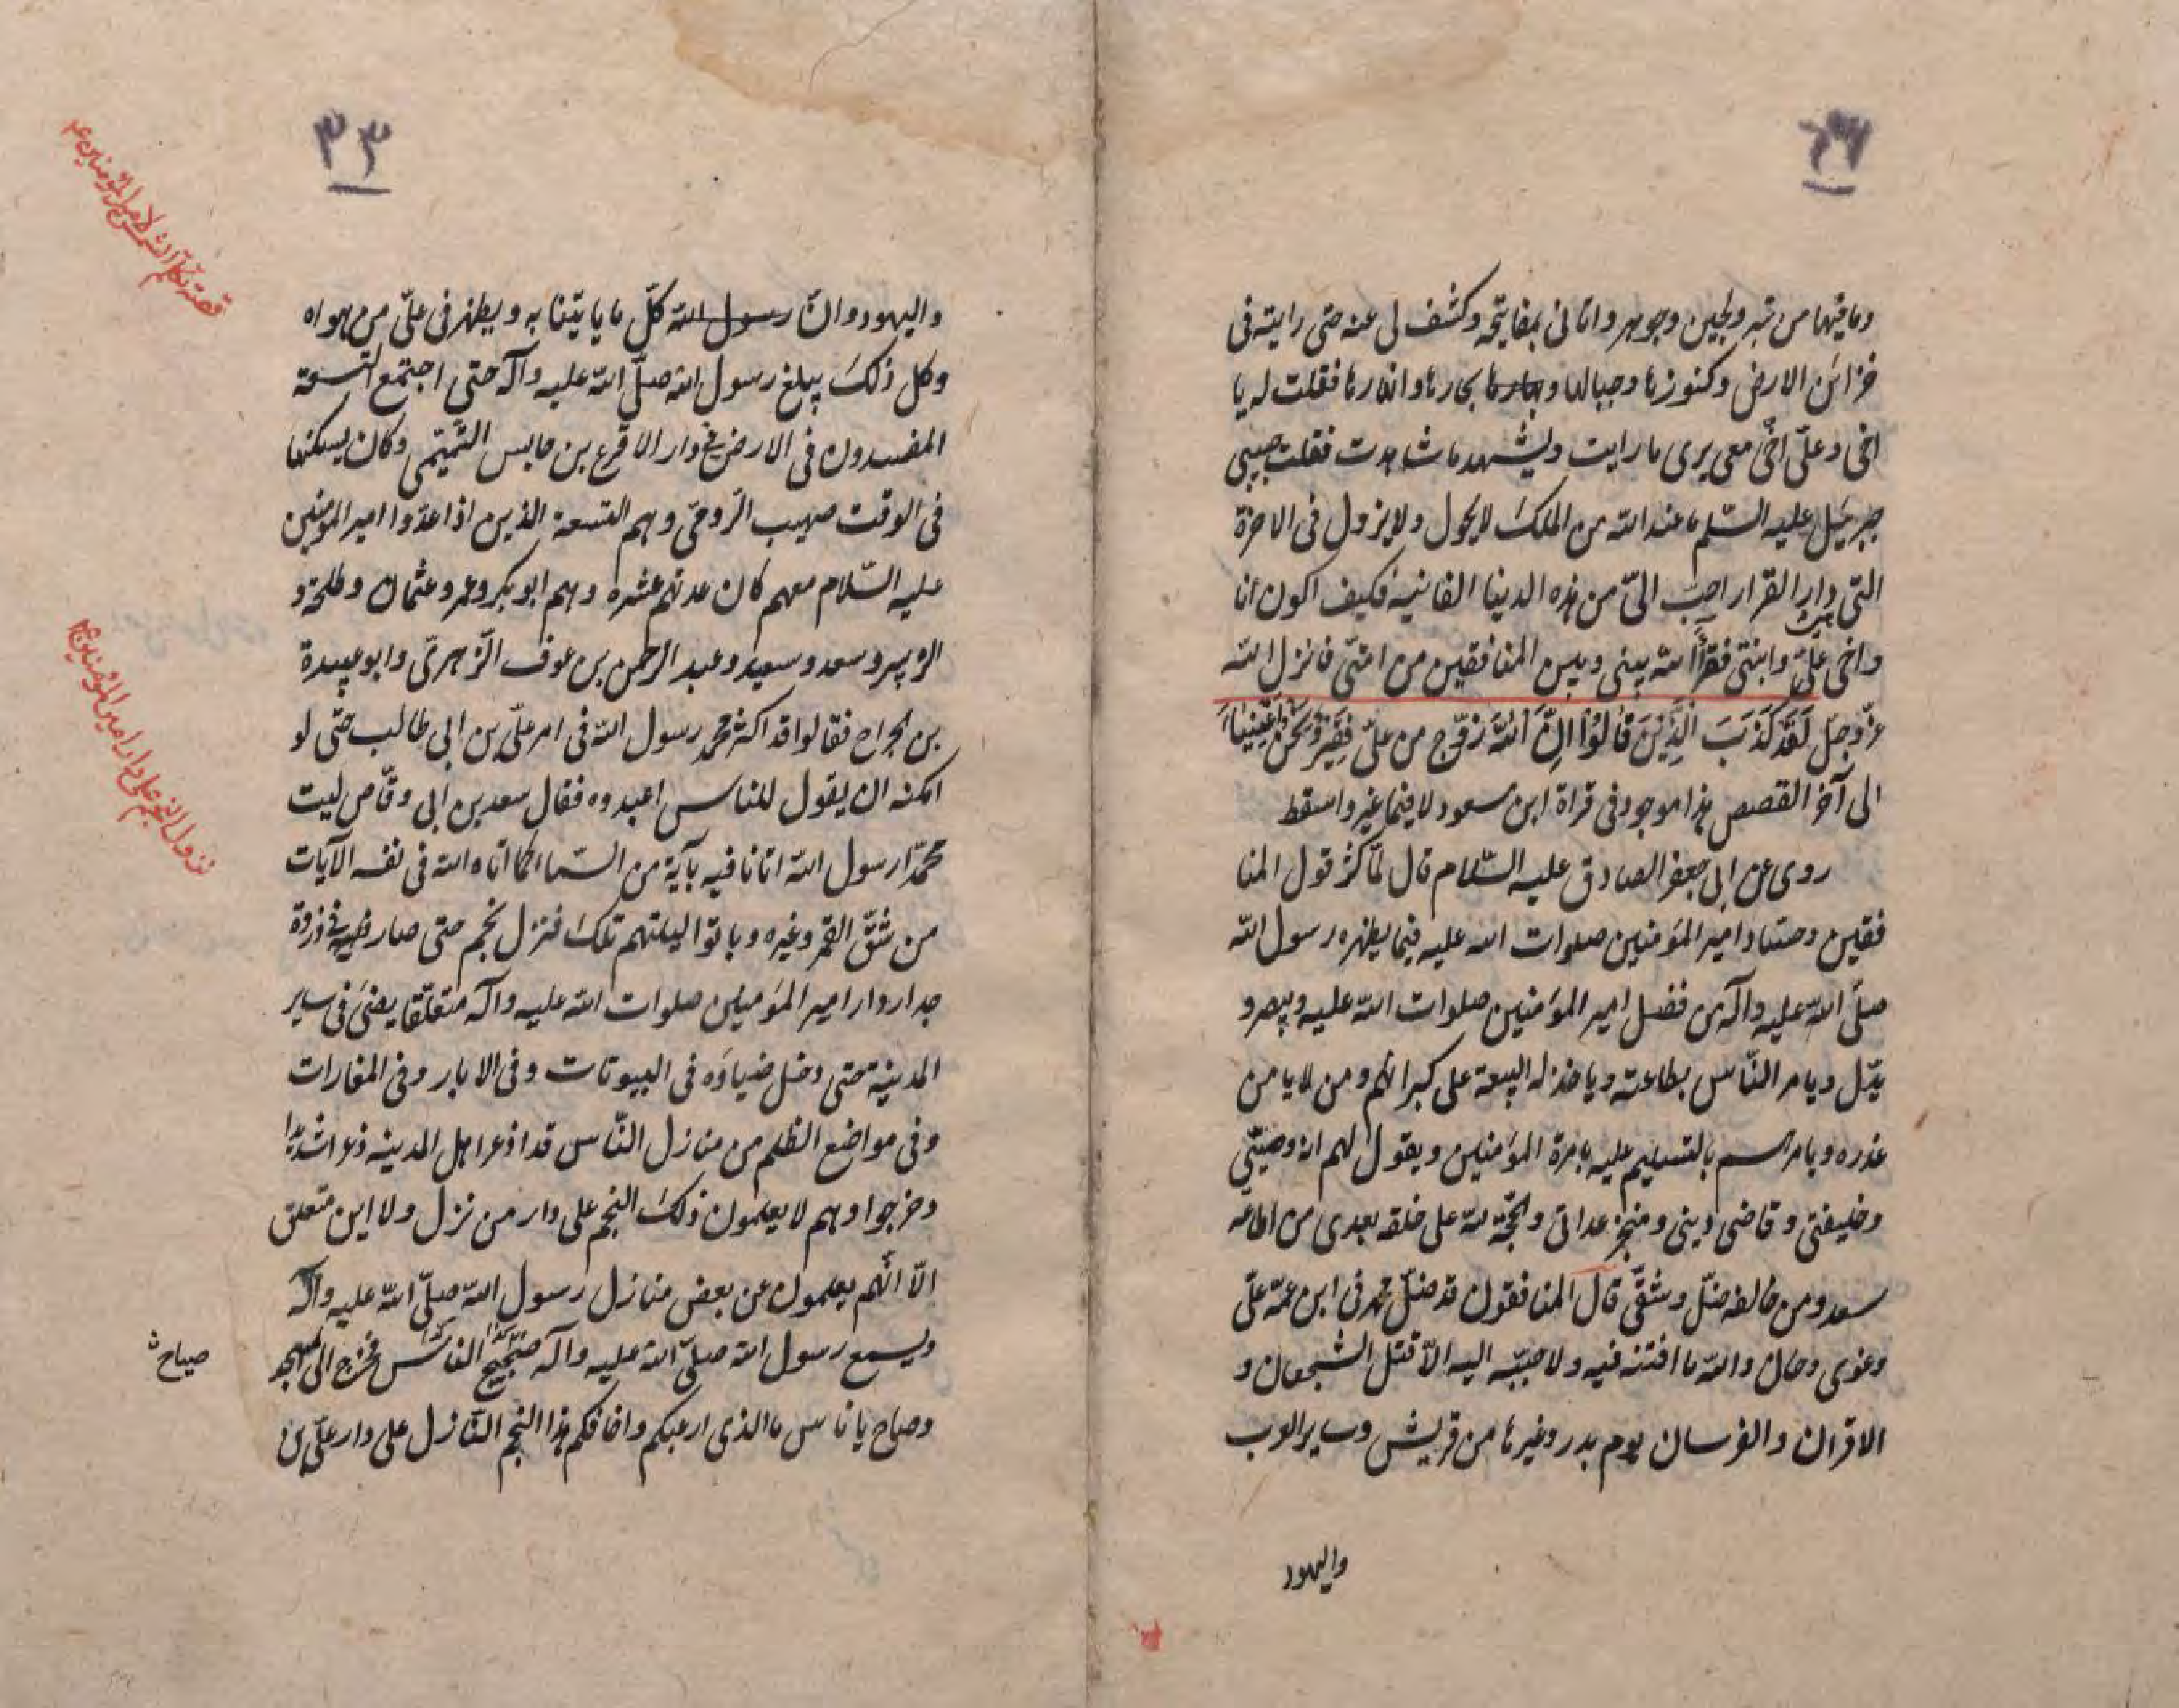 وما فيهما من تبر ولجين وجوهر واتانى بمفاتيحه وكشف لى عنه حتى رايته فى
خزائن الارض وكنوزها وجبالها وبحارها بحارها وانهارها فقلت له يا
اخى وعلىّ اخى معى يرى ما رايت ويشهد ما شاهدت فقلت حبيبى
جبرئيل عليه السّلم ما عند الله من الملك لا يحول ولا يزول فى الاخرة
التى دار القرار احبّ الىّ من هذه الدنيا الفانيه فكيف اكون انا
واخى علىّ وابنتى فقرآأ بيت الله بينى وبين المنافقين من امتى فانزل الله
عزّ وجل لَقَد كَذَبَ الَّذِينَ قَالُوا اِنَّ اللهَ زوّج من علىّ فقير وَنَحْنُ اَغْنِيَاءُ
الى آخر القصص هذا موجود فى قراة ابن مسعود لا فيما غير واسقط
روى عن ابى جعفر الصادق عليه السّلام قال لمّا كثر قول المنا
فقين وحسّاد امير المؤمنين صلوات الله عليه فيما يظهره رسول الله
صلّى الله عليه وآله من فضل امير المؤمنين صلوات الله عليه ويبصر و
يدّل ويامر النّاس بطاعته وياخذ له البيعة على كبرائهم ومن لا يامن
غدره ويامرهم بالتسليم عليه بامرة المؤمنين ويقول لهم انه وصيّى
وخليفتى وقاضى دينى ومنجز عداتى والحجّة لله على خلقه بعدى من اطاعه
سعد ومن خالفه ضلّ وشقى قال المنافقون قد ضلّ محمد فى ابن عمّه علىّ
وغوى وحان والله ما افتنه فيه ولا حبّبه اليه الّا قتل الشجعان و
الاقران والفرسان يوم بدر وغيرها من قريش وساير العرب
واليهود
٣٣
واليهود وانّ رسول الله كلّ ما ياتينا به ويظهر فى علىّ من هواه
وكل ذلك يبلغ رسول الله صلّى الله عليه وآله حتى اجتمع التسعة
المفسدون فى الارض فى دار الاقرع بن حابس التّميمى وكان يسكنها
فى الوقت صهيب الرّومىّ وهم التسعة الذين اذا عدّوا امير المؤمنين
عليه السّلام معهم كان عدتهم عشره وهم ابو بكر وعمر وعثمان وطلحة و
الزبير وسعد وسعيد وعبد الرحمن بن عوف الزّهرىّ وابو عبيدة
بن الجراح فقالوا قد اكثر محمد رسول الله فى امر علىّ بن ابى طالب حتى لو
امكنه ان يقول للناس اعبدوه فقال سعد بن ابى وقّاص ليت
محمّدا رسول الله اتانا فيه بآية من السّما كما اتاه الله فى نفسه الآيات
من شقّ القمر وغيره وباتوا ليلتهم تلك فنزل نجم حتى صار فى ذروة
جدار دار امير المؤمنين صلوات الله عليه وآله متعلّقا يضئ فى ساير
المدينه حتى دخل ضياؤه فى البيوتات وفى الابار وفى المغارات
وفى مواضع الظلم من منازل النّاس قد اذعر اهل المدينه ذعرا شديدا
وخرجوا وهم لا يعلمون ذلك النجم على دار من نزل ولا اين متعلق
الّا انّهم يعلمون عن بعض منازل رسول الله صلّى الله عليه وآله
ويسمع رسول الله صلّى الله عليه وآله ضجيج الناس فخرج الى المسجد
صياح
وصاح يا ناس ما الذى ارعبكم واخافكم هذا النجم النّازل على دار علىّ بن
قصّة تكلّم الشمس لامير المؤمنين ع
نزول النجم على دار امير المؤمنين ع